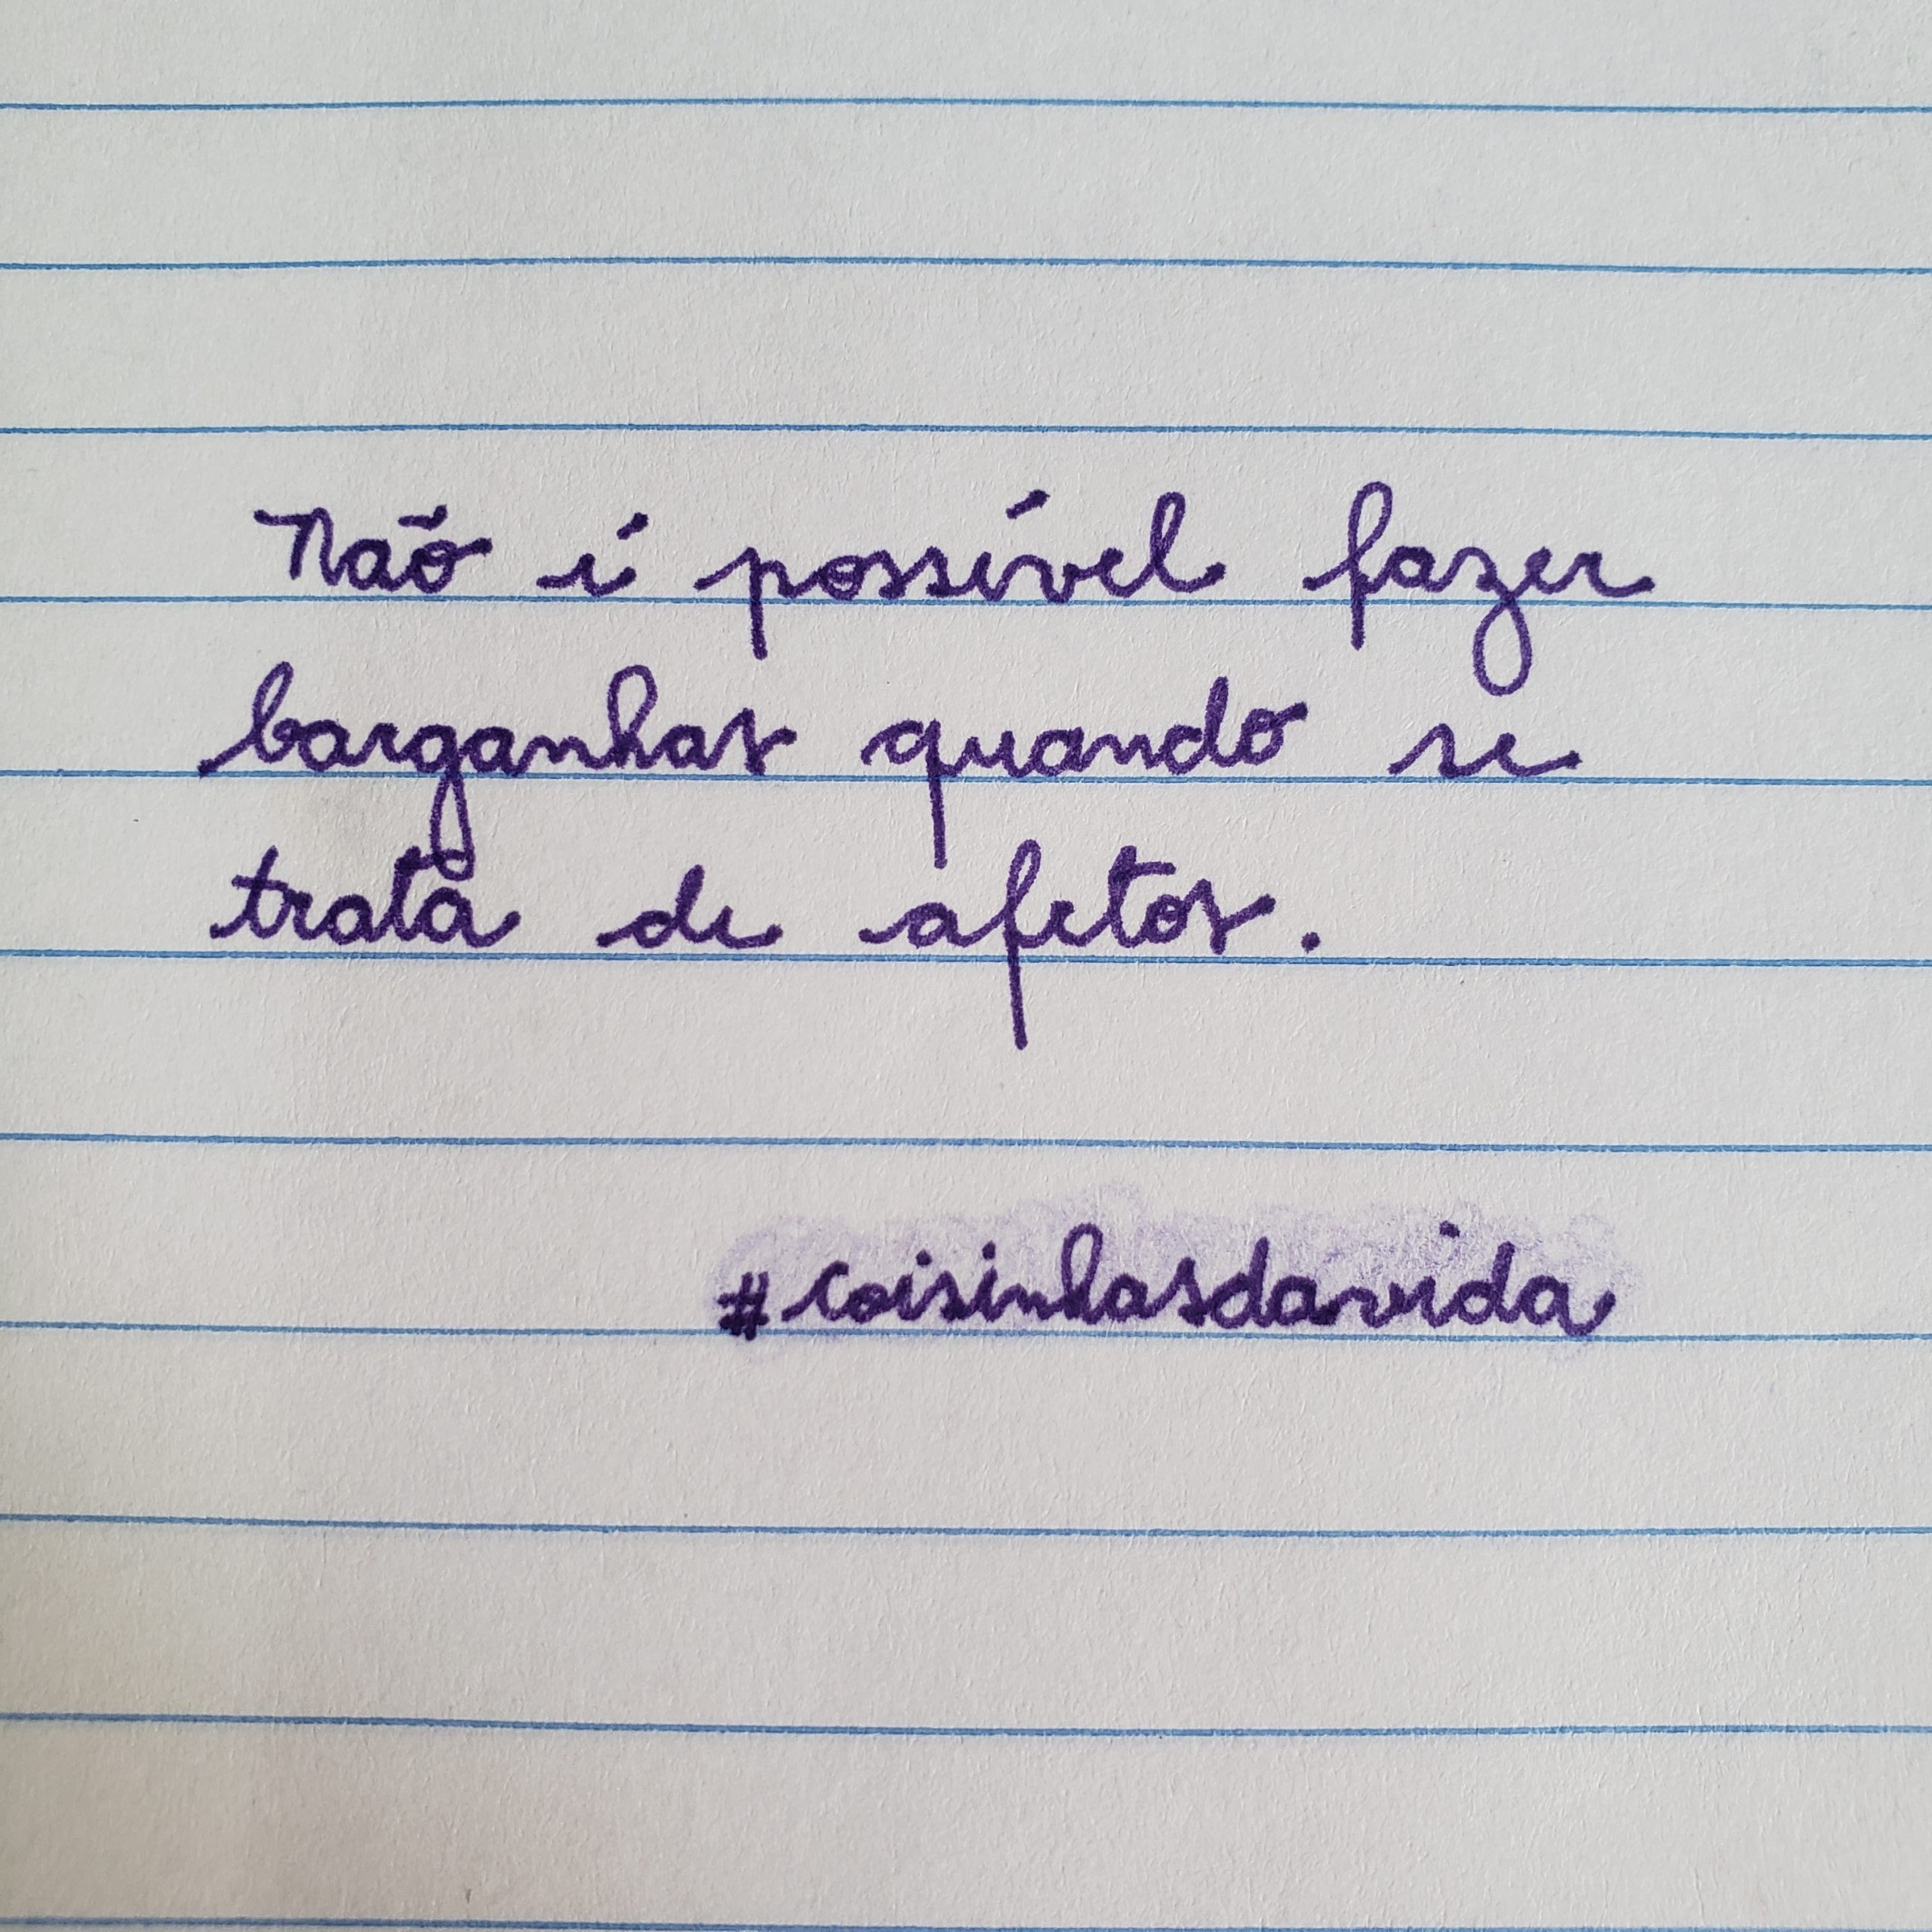 Não é possível fazer
barganhas quando se
trata de afetos.
#coisinhasdavida